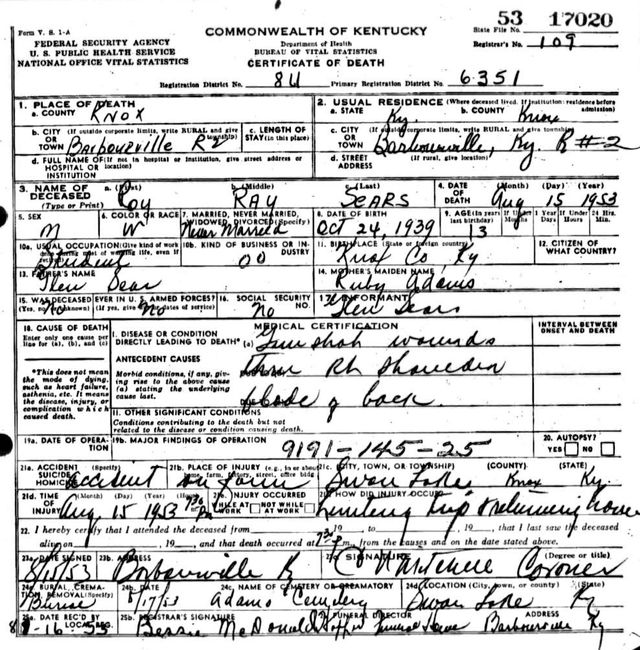 Form V. S. 1-A
FEDERAL SECURITY AGENCY
U. S. PUBLIC HEALTH SERVICE
NATIONAL OFFICE VITAL STATISTICS
COMMONWEALTH OF KENTUCKY
Department of Health
BUREAU OF VITAL STATISTICS
CERTIFICATE OF DEATH
State File No. 53 17020
Registrar's No. 109
Registration District No. 84 Primary Registration District No. 6351
1. PLACE OF DEATH
a. COUNTY Knox
b. CITY (If outside corporate limits, write RURAL and give township)
OR TOWN Barbourville R2
c. LENGTH OF STAY (in this place)
d. FULL NAME OF (If not in hospital or institution, give street address or location)
HOSPITAL OR INSTITUTION
2. USUAL RESIDENCE (Where deceased lived. If institution: residence before admission)
a. STATE Ky b. COUNTY Knox
c. CITY (If outside corporate limits, write RURAL and give township)
OR TOWN Barbourville, Ky. R#2
d. STREET ADDRESS (If rural, give location)
3. NAME OF DECEASED (Type or Print)
a. (First) Coy b. (Middle) RAY c. (Last) SEARS
4. DATE OF DEATH (Month) (Day) (Year) Aug 15 1953
5. SEX M
6. COLOR OR RACE W
7. MARRIED, NEVER MARRIED, WIDOWED, DIVORCED (Specify) Never Married
8. DATE OF BIRTH Oct 24, 1939
9. AGE (In years last birthday) 13
If Under 1 Year Months Days
If Under 24 Hrs. Hours Min.
10a. USUAL OCCUPATION (Give kind of work done during most of working life, even if retired) Student
10b. KIND OF BUSINESS OR INDUSTRY 00
11. BIRTHPLACE (State or foreign country) Knox Co, Ky
12. CITIZEN OF WHAT COUNTRY?
13. FATHER'S NAME Glen Sears
14. MOTHER'S MAIDEN NAME Ruby Adams
15. WAS DECEASED EVER IN U. S. ARMED FORCES? (Yes, no, or unknown) No (If yes, give war or dates of service) No
16. SOCIAL SECURITY NO. No
17. INFORMANT Glen Sears
18. CAUSE OF DEATH
Enter only one cause per line for (a), (b), and (c)
*This does not mean the mode of dying, such as heart failure, asthenia, etc. It means the disease, injury, or complication which caused death.
MEDICAL CERTIFICATION
INTERVAL BETWEEN ONSET AND DEATH
I. DISEASE OR CONDITION DIRECTLY LEADING TO DEATH* (a) Gun shot wounds
ANTECEDENT CAUSES
Morbid conditions, if any, giving rise to the above cause (a) stating the underlying cause last.
thru Rt Shoulder
blade of back
II. OTHER SIGNIFICANT CONDITIONS
Conditions contributing to the death but not related to the disease or condition causing death.
19a. DATE OF OPERATION
19b. MAJOR FINDINGS OF OPERATION
9191-145-25
20. AUTOPSY? YES NO
21a. ACCIDENT (Specify) SUICIDE HOMICIDE accident
21b. PLACE OF INJURY (e.g., in or about home, farm, factory, street, office bldg) on farm
21c. (CITY, TOWN, OR TOWNSHIP) (COUNTY) (STATE)
Swan Lake Knox Ky.
21d. TIME OF INJURY (Month) (Day) (Year) Aug 15 1953 7:30 P
21e. INJURY OCCURRED WHILE AT WORK NOT WHILE AT WORK
21f. HOW DID INJURY OCCUR?
hunting trip & returning home
22. I hereby certify that I attended the deceased from 19 to 19 , that I last saw the deceased
alive on 19 , and that death occurred at 7:30 P m., from the causes and on the date stated above.
23a. DATE SIGNED 8/15/53
23b. ADDRESS Barbourville Ky
23c. SIGNATURE Mitchell Coroner (Degree or title)
24a. BURIAL, CREMATION, REMOVAL (Specify) Burial
24b. DATE 8/17/53
24c. NAME OF CEMETERY OR CREMATORY Adams Cemetery
24d. LOCATION (City, town, or county) (State) Swan Lake Ky
25a. DATE REC'D BY LOCAL REG. 8-16-53
25b. REGISTRAR'S SIGNATURE Bessie McDonald
FUNERAL DIRECTOR ADDRESS
Hopper Funeral Home Barbourville Ky